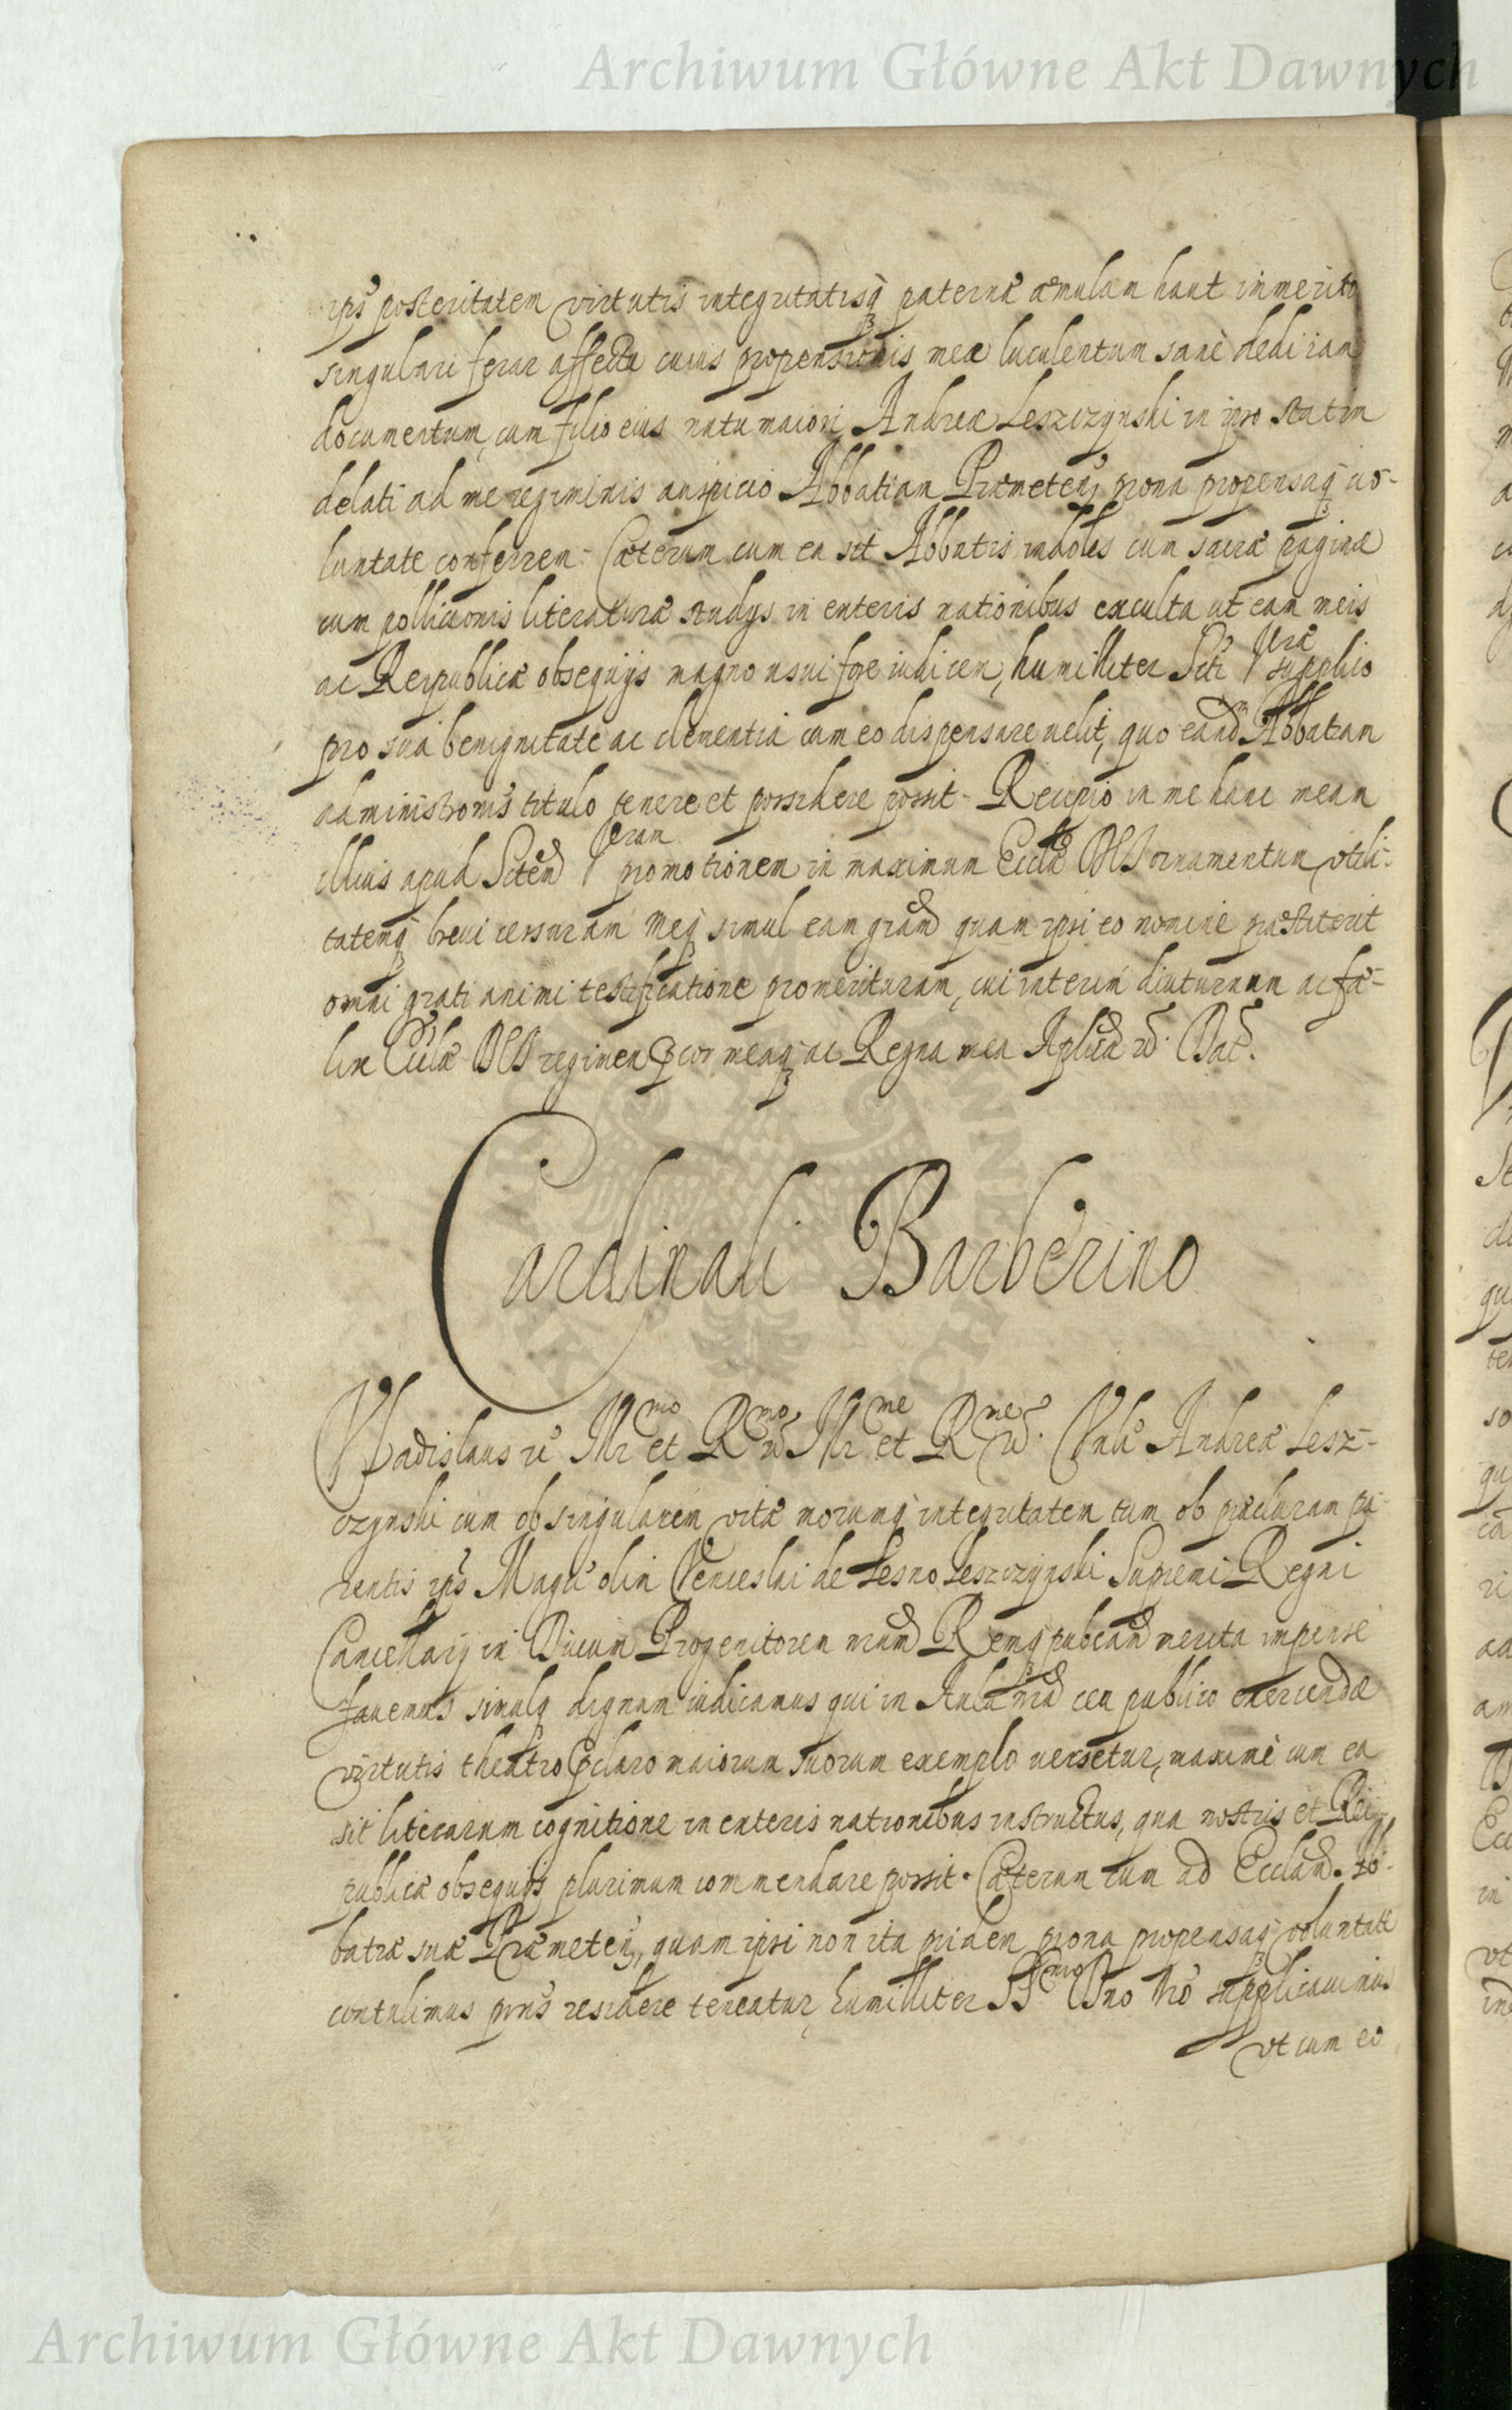 Archiwum Główne Akt Dawnych
ips' posteritatem virtutis integritatisq paternæ æmulam haut inmerito
singulari feror affectu cuius propensionis meæ luculentum sanè dedi iam
documentum, cum filio eius natu maiori Andreæ Leszczynski in ipso statim
delati ad me regiminis auspicio Abbatiam Præmeten, prona propensaq uo-
luntate conferrem. Cæterum cum ea sit Abbatis indoles cum sacræ paginæ
cum politioris literaturæ studijs in exteris nationibus exculta ut eam meis
ac Reipublicæ obsequijs magno usui fore iudicem, humilliter Scti Vræ supplico
pro sua benignitate ac clementia cum eo dispensare uelit, quo eand^m Abbatiam
administronis titulo tenere et possidere possit. Recipio in me hanc meam
illius apud Sctem Vram promotionem in maximum Eccliæ DEI ornamentum vtili-
tatemq breui cessuram Meq simul eam gram quam ipsi eo nomine præstiterit
omni grati animi testificatione promerituram, cui interim diuturnum ac fæ-
lix Ecclæ DEI regimen pcor meaq ac Regna mea Aplicæ &. Dat.
Cardinali Barberino
Vladislaus &c Illr^mo et R^mo &. Illr^me et R^me &. Vnle Andreæ Lesz-
czynski cum ob singularem vitæ morumq integritatem tum ob præclaram pa-
rentis ips' Magci olim Venceslai de Lesno Leszczynski Supremi Regni
Cancellarij in Diuum Progenitorem nrum Remq pubcam merita impense
fauemus simulq dignum iudicamus qui in Aula nra ceu publico exercendæ
virtutis theatro pclaro maiorum suorum exemplo uersetur, maximè cum ea
sit literarum cognitione in exteris nationibus instructus, qua nostris et Rei-
publicæ obsequijs plurimum commendare possit. Cæterum cum ad Eccliam Ab-
batiæ suæ Præmeten, quam ipsi non ita pridem prona propensaq voluntate
contulimus pns residere teneatur, humilliter SS^mo Dno Nro supplicauimus
vt cum eo
Archiwum Główne Akt Dawnych